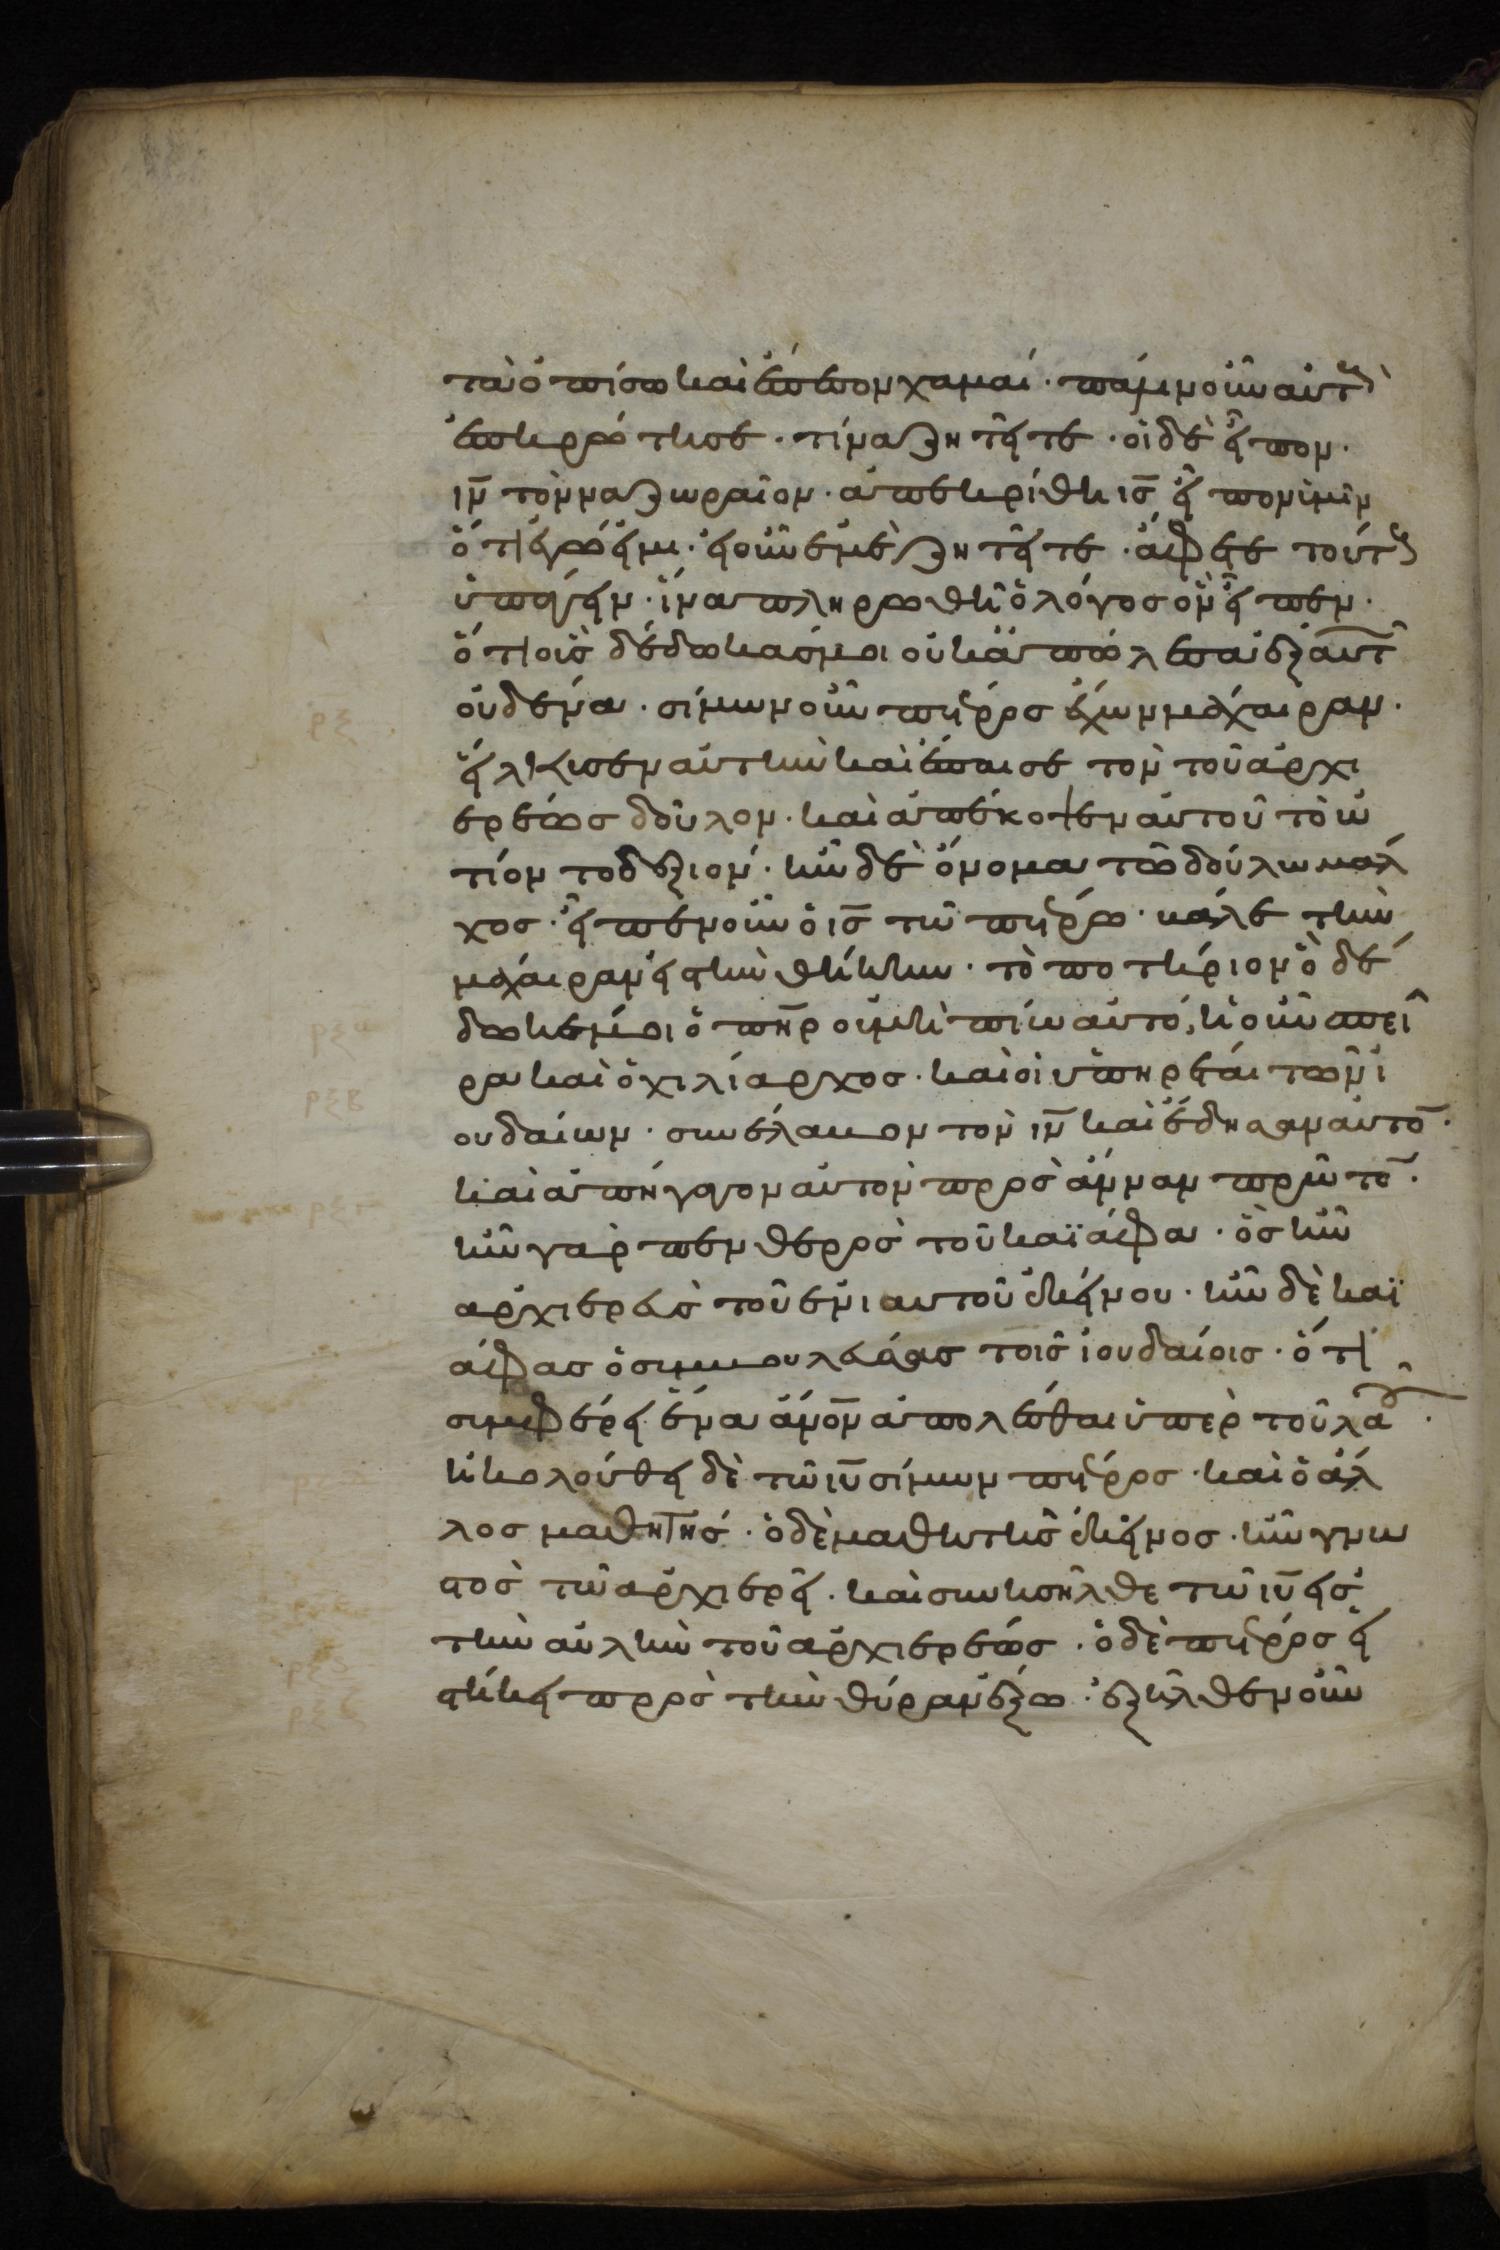 τὰ ὀπίσω καὶ ἔπεσον χαμαί · πάλιν οὖν αὐτοὺς
ἐπηρώτησε · τίνα ζητεῖτε · οἱ δὲ εἶπον ·
ιν̅ τὸν ναζωραῖον · ἀπεκρίθη ις̅ εἶπον ὑμῖν
ὅτι ἐγώ εἰμι · εἰ οὖν ἐμὲ ζητεῖτε · ἄφετε τούτους
ὑπάγειν · ἵνα πληρωθῆ ὁ λόγος ὃν εἶπεν ·
ὅτι οὓς δέδωκάς μοι οὐκ ἀπώλεσα ἐξ αὐτῶν
οὐδένα · σίμων οὖν πέτρος ἔχων μάχαιραν ·
εἵλκυσεν αὐτὴν καὶ ἔπαισε τὸν τοῦ ἀρχι
ερέως δοῦλον · καὶ ἀπέκοψεν αὐτοῦ τὸ ὠ
τίον τὸ δεξιόν · ἦν δὲ ὄνομα τῶ δούλω μάλ
χος · εἶπεν οὖν ὁ ις̅ τῶ πέτρω · βάλε τὴν
μάχαιραν εἰς τὴν θήκην · τὸ ποτήριον ὃ δέ
δωκέ μοι ὁ πη̅ρ οὐ μὴ πίω αὐτό; ἡ οὖν σπεῖ
ρα καὶ ὁ χιλίαρχος · καὶ οἱ ὑπηρέται τῶν ἰ
ουδαίων · συνέλαβον τὸν ιν̅ καὶ ἔδησαν αὐτό̅ ·
καὶ ἀπήγαγον αὐτὸν πρὸς ἄνναν πρῶτο̅ ·
ἦν γὰρ πενθερὸς τοῦ καϊάφα · ὃς ἦν
ἀρχιερεὺς τοῦ ἐνιαυτοῦ ἐκείνου · ἦν δὲ καϊ
άφας ὁ συμβουλεύσας τοῖς ἰουδαίοις · ὅτι
συμφέρει ἕνα ἄνο̅ν ἀπολέσθαι ὑπὲρ τοῦ λαοῦ ·
ἠκολούθει δὲ τῶ ιυ̅ σίμων πέτρος · καὶ ὁ ἄλ
λος μαθητής · ὁ δὲ μαθητὴς ἐκεῖνος · ἦν γνω
στὸς τῶ ἀρχιερεῖ · καὶ συνεισῆλθε τῶ ιυ̅ εἰς
τὴν αὐλὴν τοῦ ἀρχιερέως · ὁ δὲ πέτρος εἱ
στήκει πρὸς τὴν θύραν ἔξω · ἐξῆλθεν οὖν
ρξ
ρξα
ρξβ
ρξγ